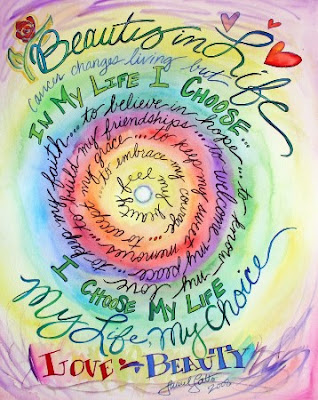 Beauty in Life
Cancer changes living but
IN MY LIFE I CHOOSE...
...to believe in hope...
...to know my love...
...to keep my faith...
...to build my friendships...
...to welcome my peace
...to keep my sweet memories
...to accept my grace...
...to embrace my courage
feel my beauty
I CHOOSE MY LIFE
My Life, My Choice
LOVE BEAUTY
2008